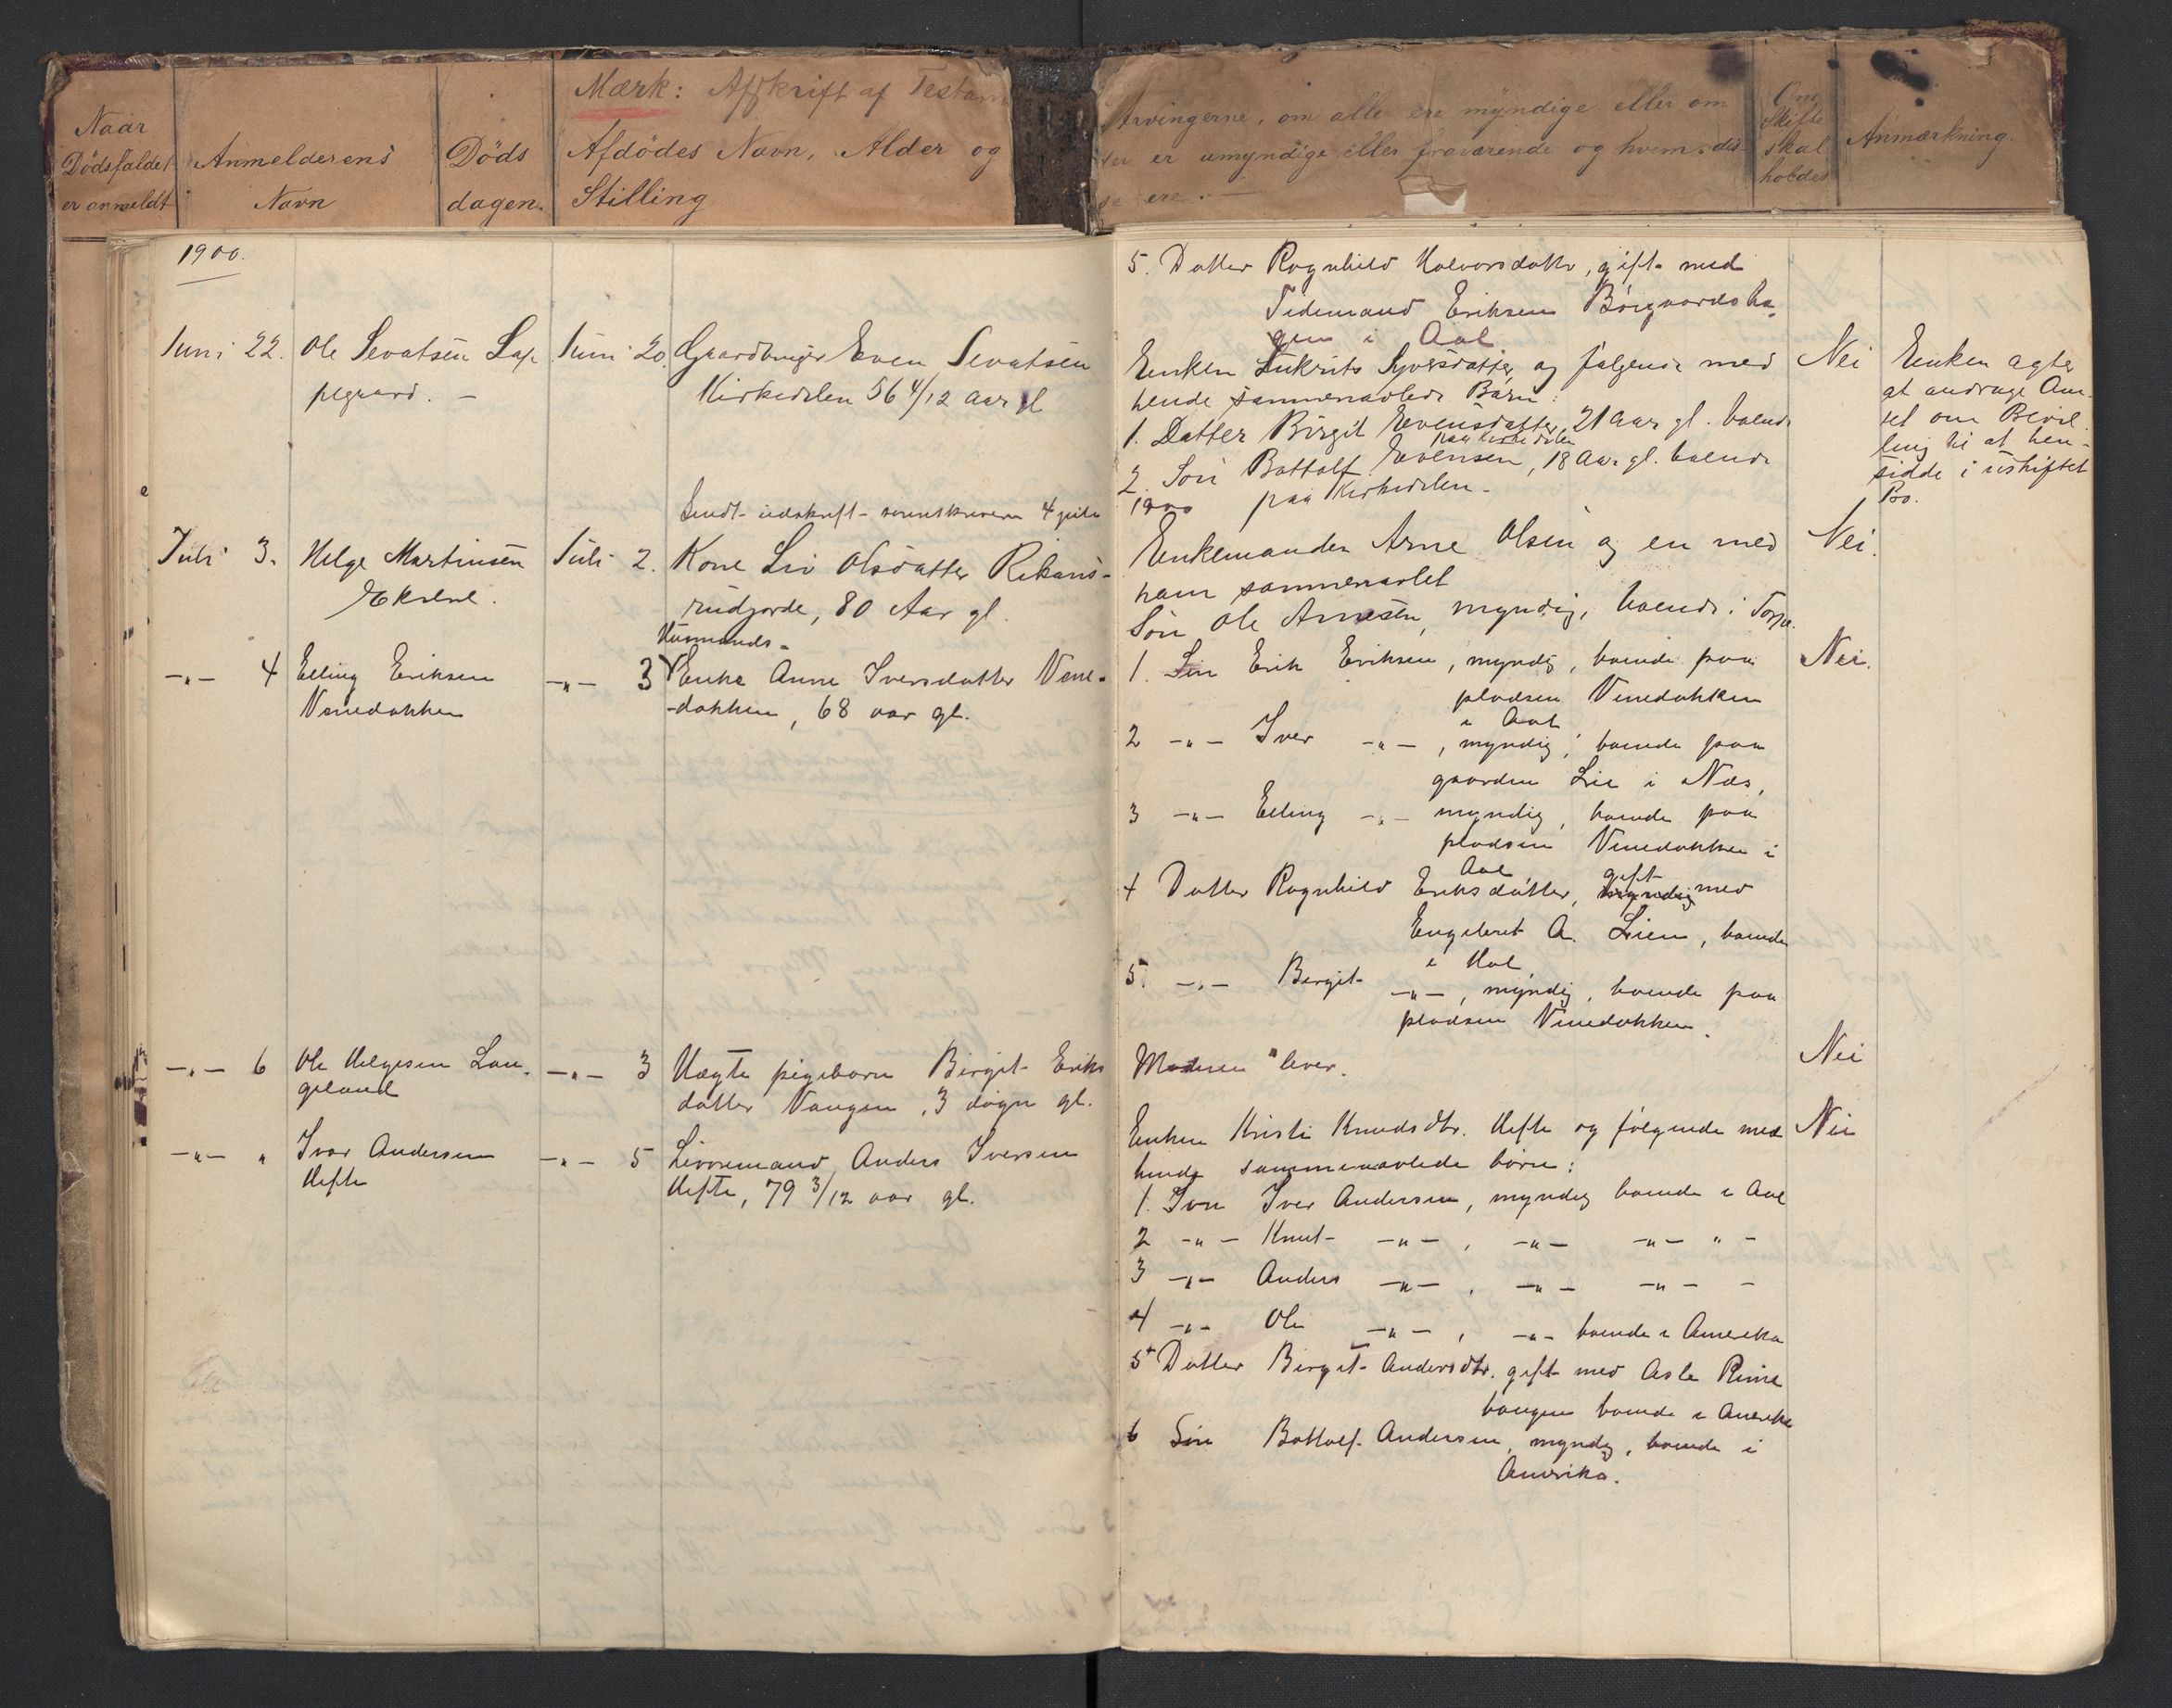 Mærk: Afskrift af Testam
Naar
Dödsfaldet
er anmeldt
Anmelderens
Navn
Döds
dagen.
Afdödes Navn, Alder og
Stilling
Arvingerne, om alle ere myndige eller om
er umyndige eller fraværende og hvem dis
se ere.
Om
Skifte
skal
holdes
Anmærkning.
1900.
Juni 22.
Ole Sevatsen Lap
pegaard. –
Juni 20.
Gaardbruger Even Sevatsen
Kirkedelen 56 4/12 Aar gl
Sendt udskrift sorenskriveren 4 juli
Juli 3.
Helge Martinsen
Juli 2.
Kone Liv Olsdatter Rikans-
rudjorde, 80 Aar gl.
-„- 4
Elling Eriksen
Venedokken
-„- 3
Husmands-
Enke Anne Iversdatter Vene-
-dokken, 68 aar gl.
-„- 6
Ole Helgesen Lan-
geland
-„- 3
Uægte pigebarn Birgit Eriks
datter Vangen, 3 døgn gl.
-„- „
Ivar Andersen
Hefte
-„- 5
Livøremand Anders Iversen
Hefte, 79 3/12 aar gl.
5. Datter Ragnhild Halvorsdatter, gift med
Tidemand Eriksen Børgaardsha-
gen i Aal
Enken Syversdatter og følgende med
hende sammenavlede Børn:
1. Datter Birgit Evensdatter, 21 Aar gl. boende
paa Kirkedelen
2. Søn Bottolf Evensen, 18 Aar gl. boende
1900 paa Kirkedelen-
Nei
Enken agter
at andrage Am-
tet om Bevil-
ling til at hen-
sidde i uskiftet
Bo.
Enkemanden Arne Olsen og en med
ham sammenavlet
Søn Ole Arnesen, myndig, boende i Torpe.
Nei.
1. Søn Erik Eriksen, myndig, boende paa
pladsen Venedokken
i Aal
2 -„- Iver -„-, myndig, boende paa
gaarden Lie i Næs,
3 -„- Elling -„- myndig, boende paa
pladsen Venedokken i
Aal
4 Datter Ragnhild Eriksdatter, myndig gift med
Engebret A. Lien, boende
i Hol
5. -„- Birgit -„-, myndig, boende paa
pladsen Venedokken.
Nei.
Moderen lever.
Nei
Enken Kristi Knudsdtr. Hefte og følgende med
hende sammenavlede børn:
1. Søn Iver Andersen, myndig boende i Aal
2 -„- Knut -„-, -„- -„- „ -
3 -„- Anders -„-, -„- -„- -
4 -„- Ole -„-, -„- boende i Amerika
5 Datter Birgit Andersdtr. gift med Asle Rime
haugen boende i Amerika
6 Søn Bottolf Andersen, myndig, boende i
Amerika.
Nei